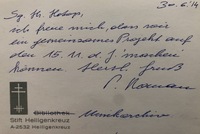 30.6.14
ich freue mich, dass wir
ein gemeinsames Projekt auf
den 15. 11. d. J. machen
können. Herzl. Gruß
P.
Bibliothek
Stift Heiligenkreuz
A-2532 Heiligenkreuz
Musikarchiv